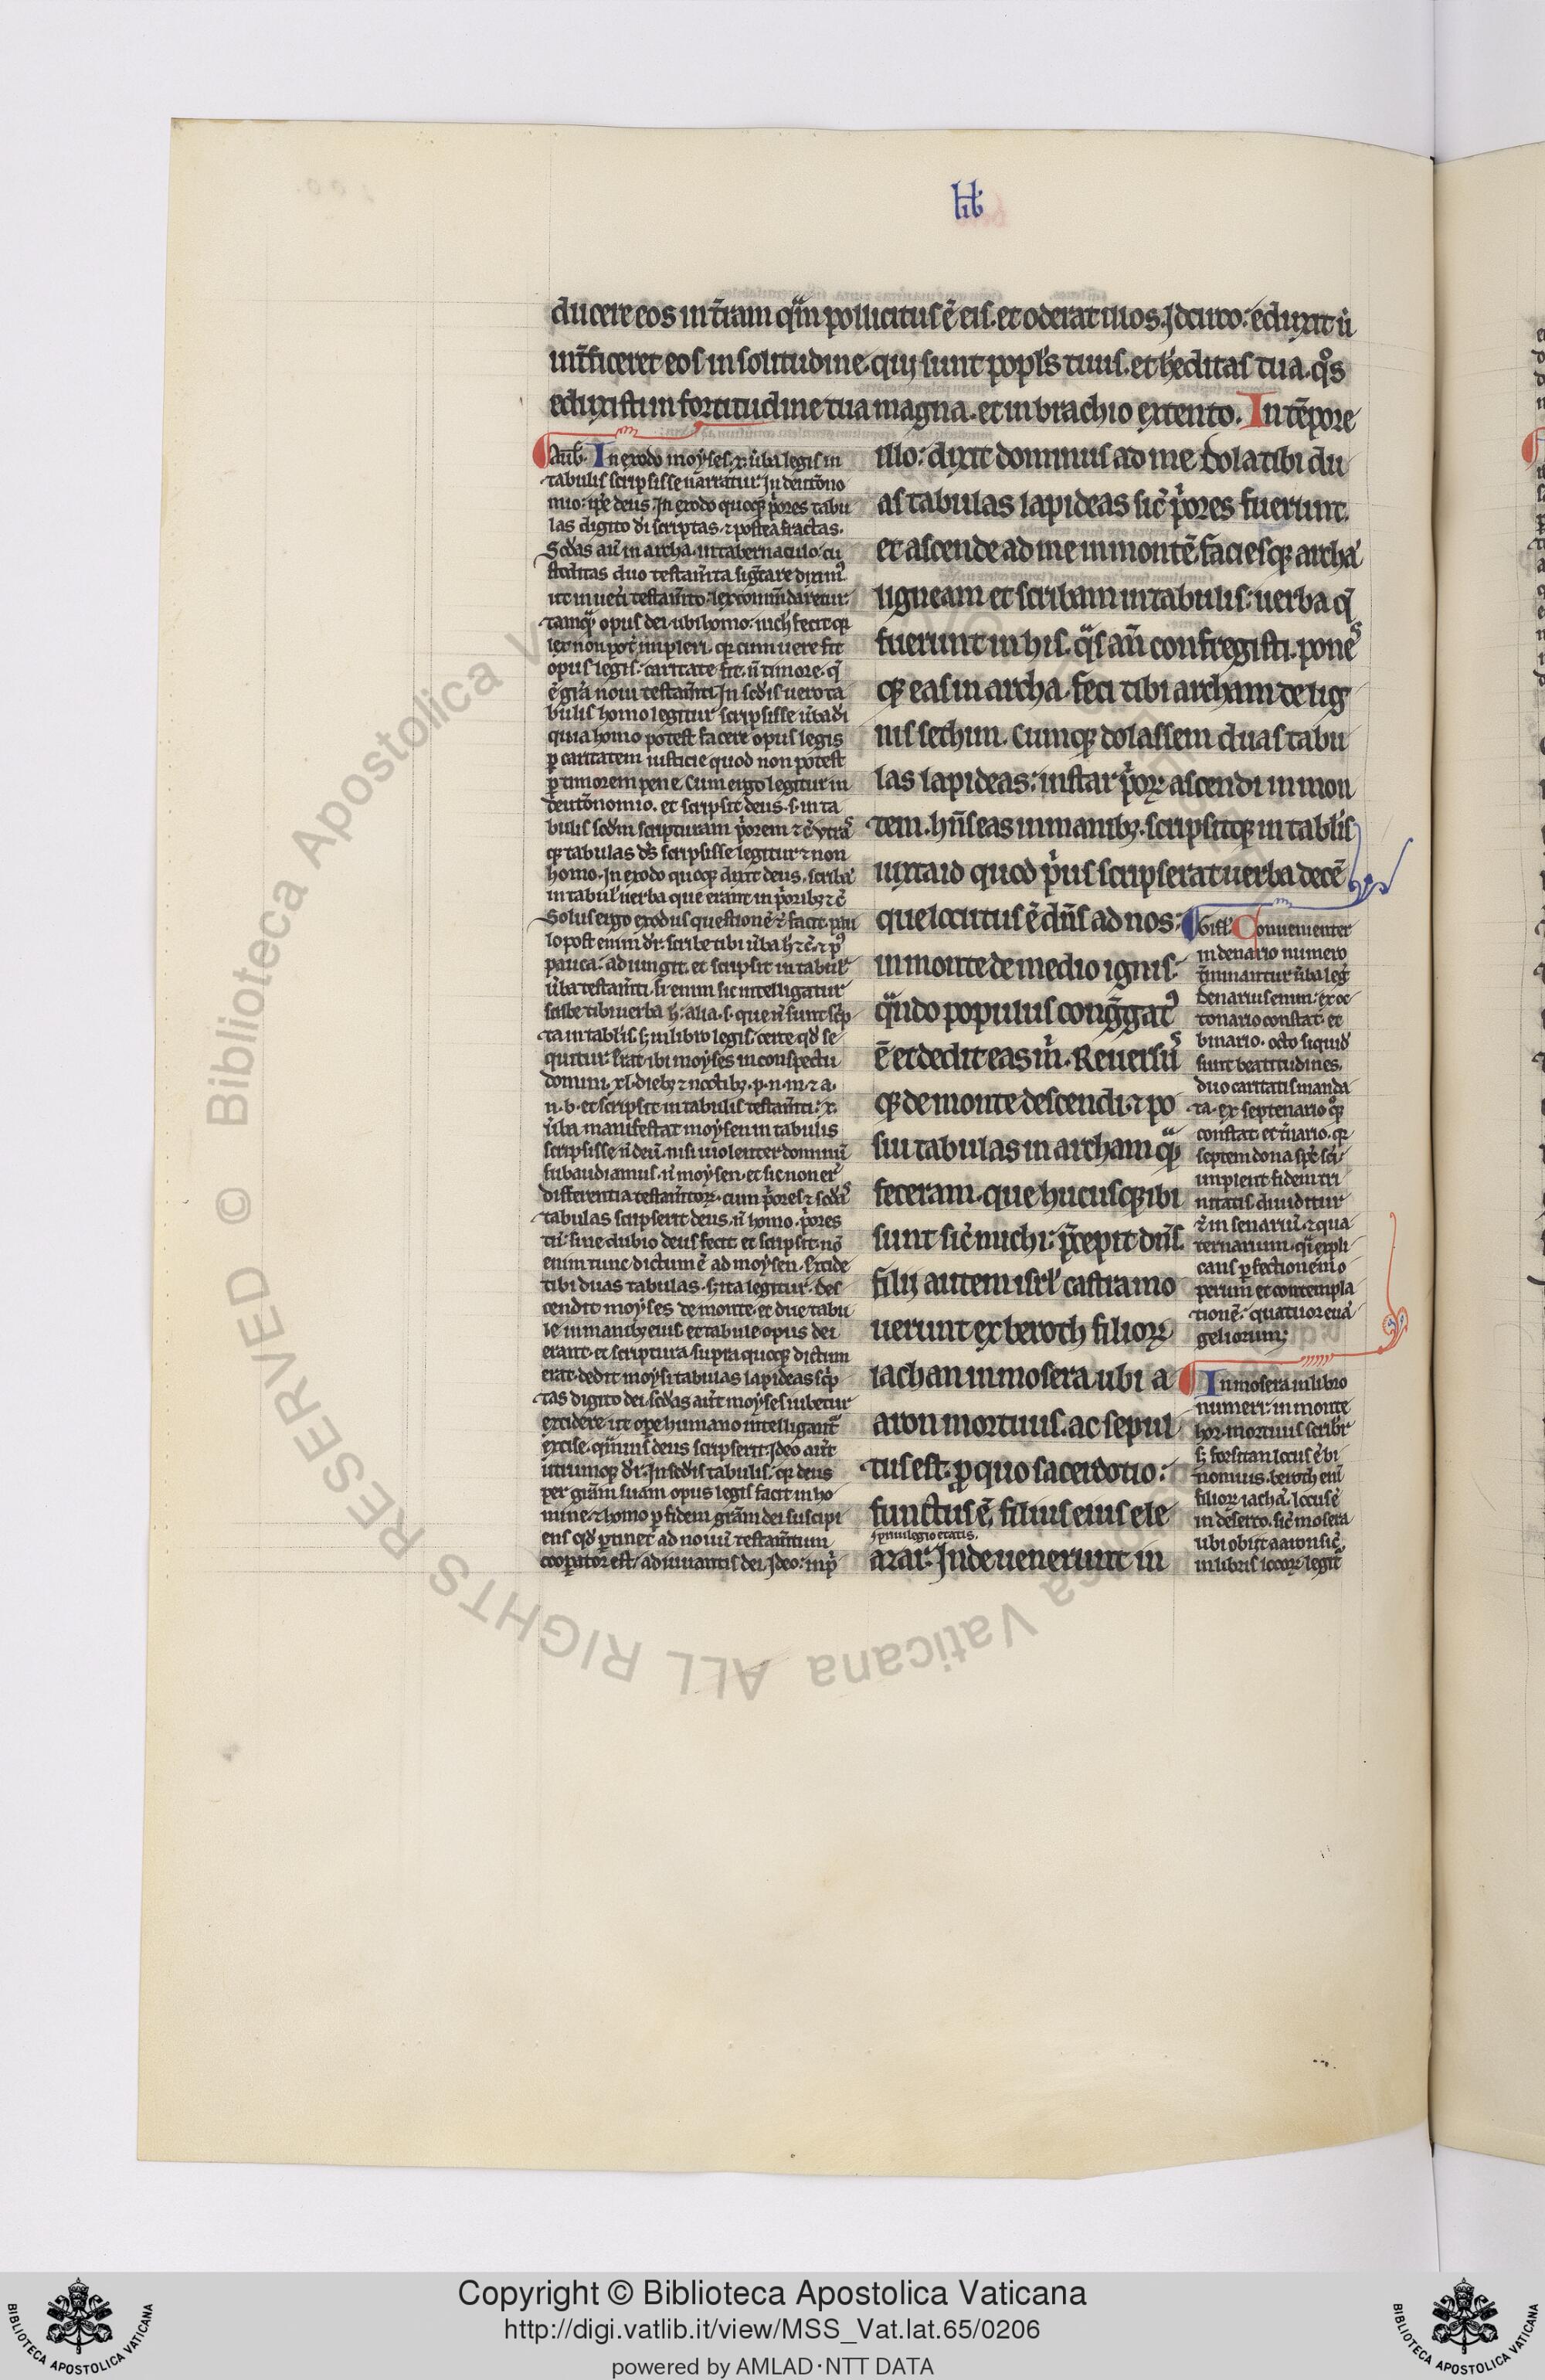 lib
ducere eos in t̄ram qͣm pollicitus ē eis. et oderat illos. Idcirco eduxit ut
int̄ficeret eos in solitudine. qui sunt popl's tuus. et h'editas tua. qͦs
eduxisti in fortitudine tua magna. et in brachio extento. In tēpore
illo: dixit dominus ad me. Dola tibi du
as tabulas lapideas sic̄ pͥores fuerunt.
et ascende ad me in montē. faciesqꝫ archā
ligneam et scribam in tabulis: uerba q̄
fuerunt in his. qͣs an̄ confregisti. ponē
qꝫ eas in archa. feci tibi archam de lig
nis sethim. Cumqꝫ dolassem duas tabu
las lapideas: instar pͥorꝝ ascendi in mon
tem. hn̄s eas in manibꝫ. scripsitqꝫ in tabl'is
iuxta id quod pͥus scripserat uerba decē
que locutus ē dn̄s ad nos:
in monte de medio ignis:
qͣndo populus cong̃gatꝰ
ē et dedit eas m̄. Reuersus
qꝫ de monte descendi. ⁊ po
sui tabulas in archam qͣm
feceram. que hucusqꝫ ibi
sunt sic̄ michi p̄cepit dn̄s.
filii autem isrl' castra mo
uerunt ex beroth filiorꝝ
iachan in mosera. ubi a
aron mortuus. ac sepul
tus est. ꝑ quo sacerdotio:
functus ē filius eius ele
ꝑuilegio etatis.
azar. Inde uenerunt in
Aub. In exodo moyses. x. ūba legis in
tabulis scripsisse narratur. In deutōno
mio: ip̄e deus. In exodo quoqꝫ pͥores tabu
las digito di scriptas. ⁊ postea fractas.
Scd̄as au in archa. in tabernaculo: cu
stoditas duo testam̄ta sig̃tare dixim̄ꝰ.
ut in uet̄i testam̄to. lex com̄ndaretur.
tamqͣ opus dei. ubi homo: nich' fecit. qꝫ
lex non pot̄ impleri. qꝫ cum uere fit
opus legis. caritate fit. n̄ timore. q̄
ē gr̄a noui testam̄ti. In scd̄is uero ta
bulis homo legitur scripsisse ūba di
quia homo potest facere opus legis
ꝑ caritatem iusticie quod non potest
ꝑ timorem pene. Cum ergo legitur in
deutōnomio. et scripsit deus. s. in ta
bulis scd̄m scripturam pͥorem ⁊c̄ utras
qꝫ tabulas ds̄ scripsisse legitur ⁊ non
homo. In exodo quoqꝫ dixit deus. scribā
in tabul' uerba que erant in pͥoribꝫ ⁊c̄
Solus ergo exodus questionē facit. pau
lo post enim dr̄. scribe tibi ūba h̄ ⁊c̄. ⁊ pꝰ
pauca: adiungit. et scripsit in tabul'
ūba testam̄ti. si enim sic intelligatur
scribe tibi uerba h̄: alia. s. que n̄ sunt sc̄p
ta in tabl'is. s; in libro legis. certe qd̄ se
quitur. Erat ibi moyses in conspectu
domini. xl. diebꝫ ⁊ noctibꝫ. p. n. m. ⁊ a.
n. b. et scripsit in tabulis testam̄ti. x.
ūba. manifestat moysen in tabulis
scripsisse n̄ deū. nisi uiolenter dominū
subaudiamus. n̄ moysen. et sic non er̄
differentia testam̄torꝝ. cum pͥores ⁊ scd̄as
tabulas scripserit deus. n̄ homo. pͥores
tn̄. sine dubio deus fecit. et scripsit. nō
enim tunc dictum ē ad moysen. Excide
tibi duas tabulas. s; ita legitur. Des
cendit moyses de monte. et due tabu
le in manibꝫ eius. et tabule opus dei
erant. et scriptura. supra quoqꝫ dictum
erat. dedit moysi tabulas lapideas sc̄p
tas digito dei. scd̄as aut̄ moyses iubetur
excidere. ut ope humano intelligantͬ
excise. qͣmuis deus scripserit. Ideo aut̄
utrumqꝫ dr̄. In scd̄is tabulis. qꝫ deus
per grām suam. opus legis facit in ho
mine. ⁊ homo ꝑ fidem grām dei suscipi
ens qd̄ ꝑtinet ad nouū testam̄tum
cooꝑator est. adiuuantis dei. Ideo: in pͥ
Gisl'. Conuenienter
in denario numero
t̄minantur ūba leg̅.
denarius enim: ex oc
tonario constat. et
binario. octo siquid̄
sunt beatitudines.
duo caritatis manda
ta. ex septenario qͦqꝫ
constat. et t̄nario. qꝫ
septem dona sp̄c sc̄i
implent. fidem tri
nitatis. diuiditur
⁊ in senariū. ⁊ qua
ternarium. qͥ expli
cans ꝑfectionem o
perum et contempla
tionē. quatuor euā
geliorum;
In mosera in libro
numeri: in monte
hor. mortuus scribr̄
s; forsitan locus ē bi
nomius. beroth enī
filiorꝝ iachā. locus ē
in deserto. sic̄ mosera
ubi obiit aaron sic̄.
in libris locorꝝ legit̄
© Biblioteca Apostolica Vaticana ALL RIGHTS RESERVED
Copyright © Biblioteca Apostolica Vaticana
http://digi.vatlib.it/view/MSS_Vat.lat.65/0206
powered by AMLAD·NTT DATA
BIBLIOTECA APOSTOLICA VATICANA
BIBLIOTECA APOSTOLICA VATICANA